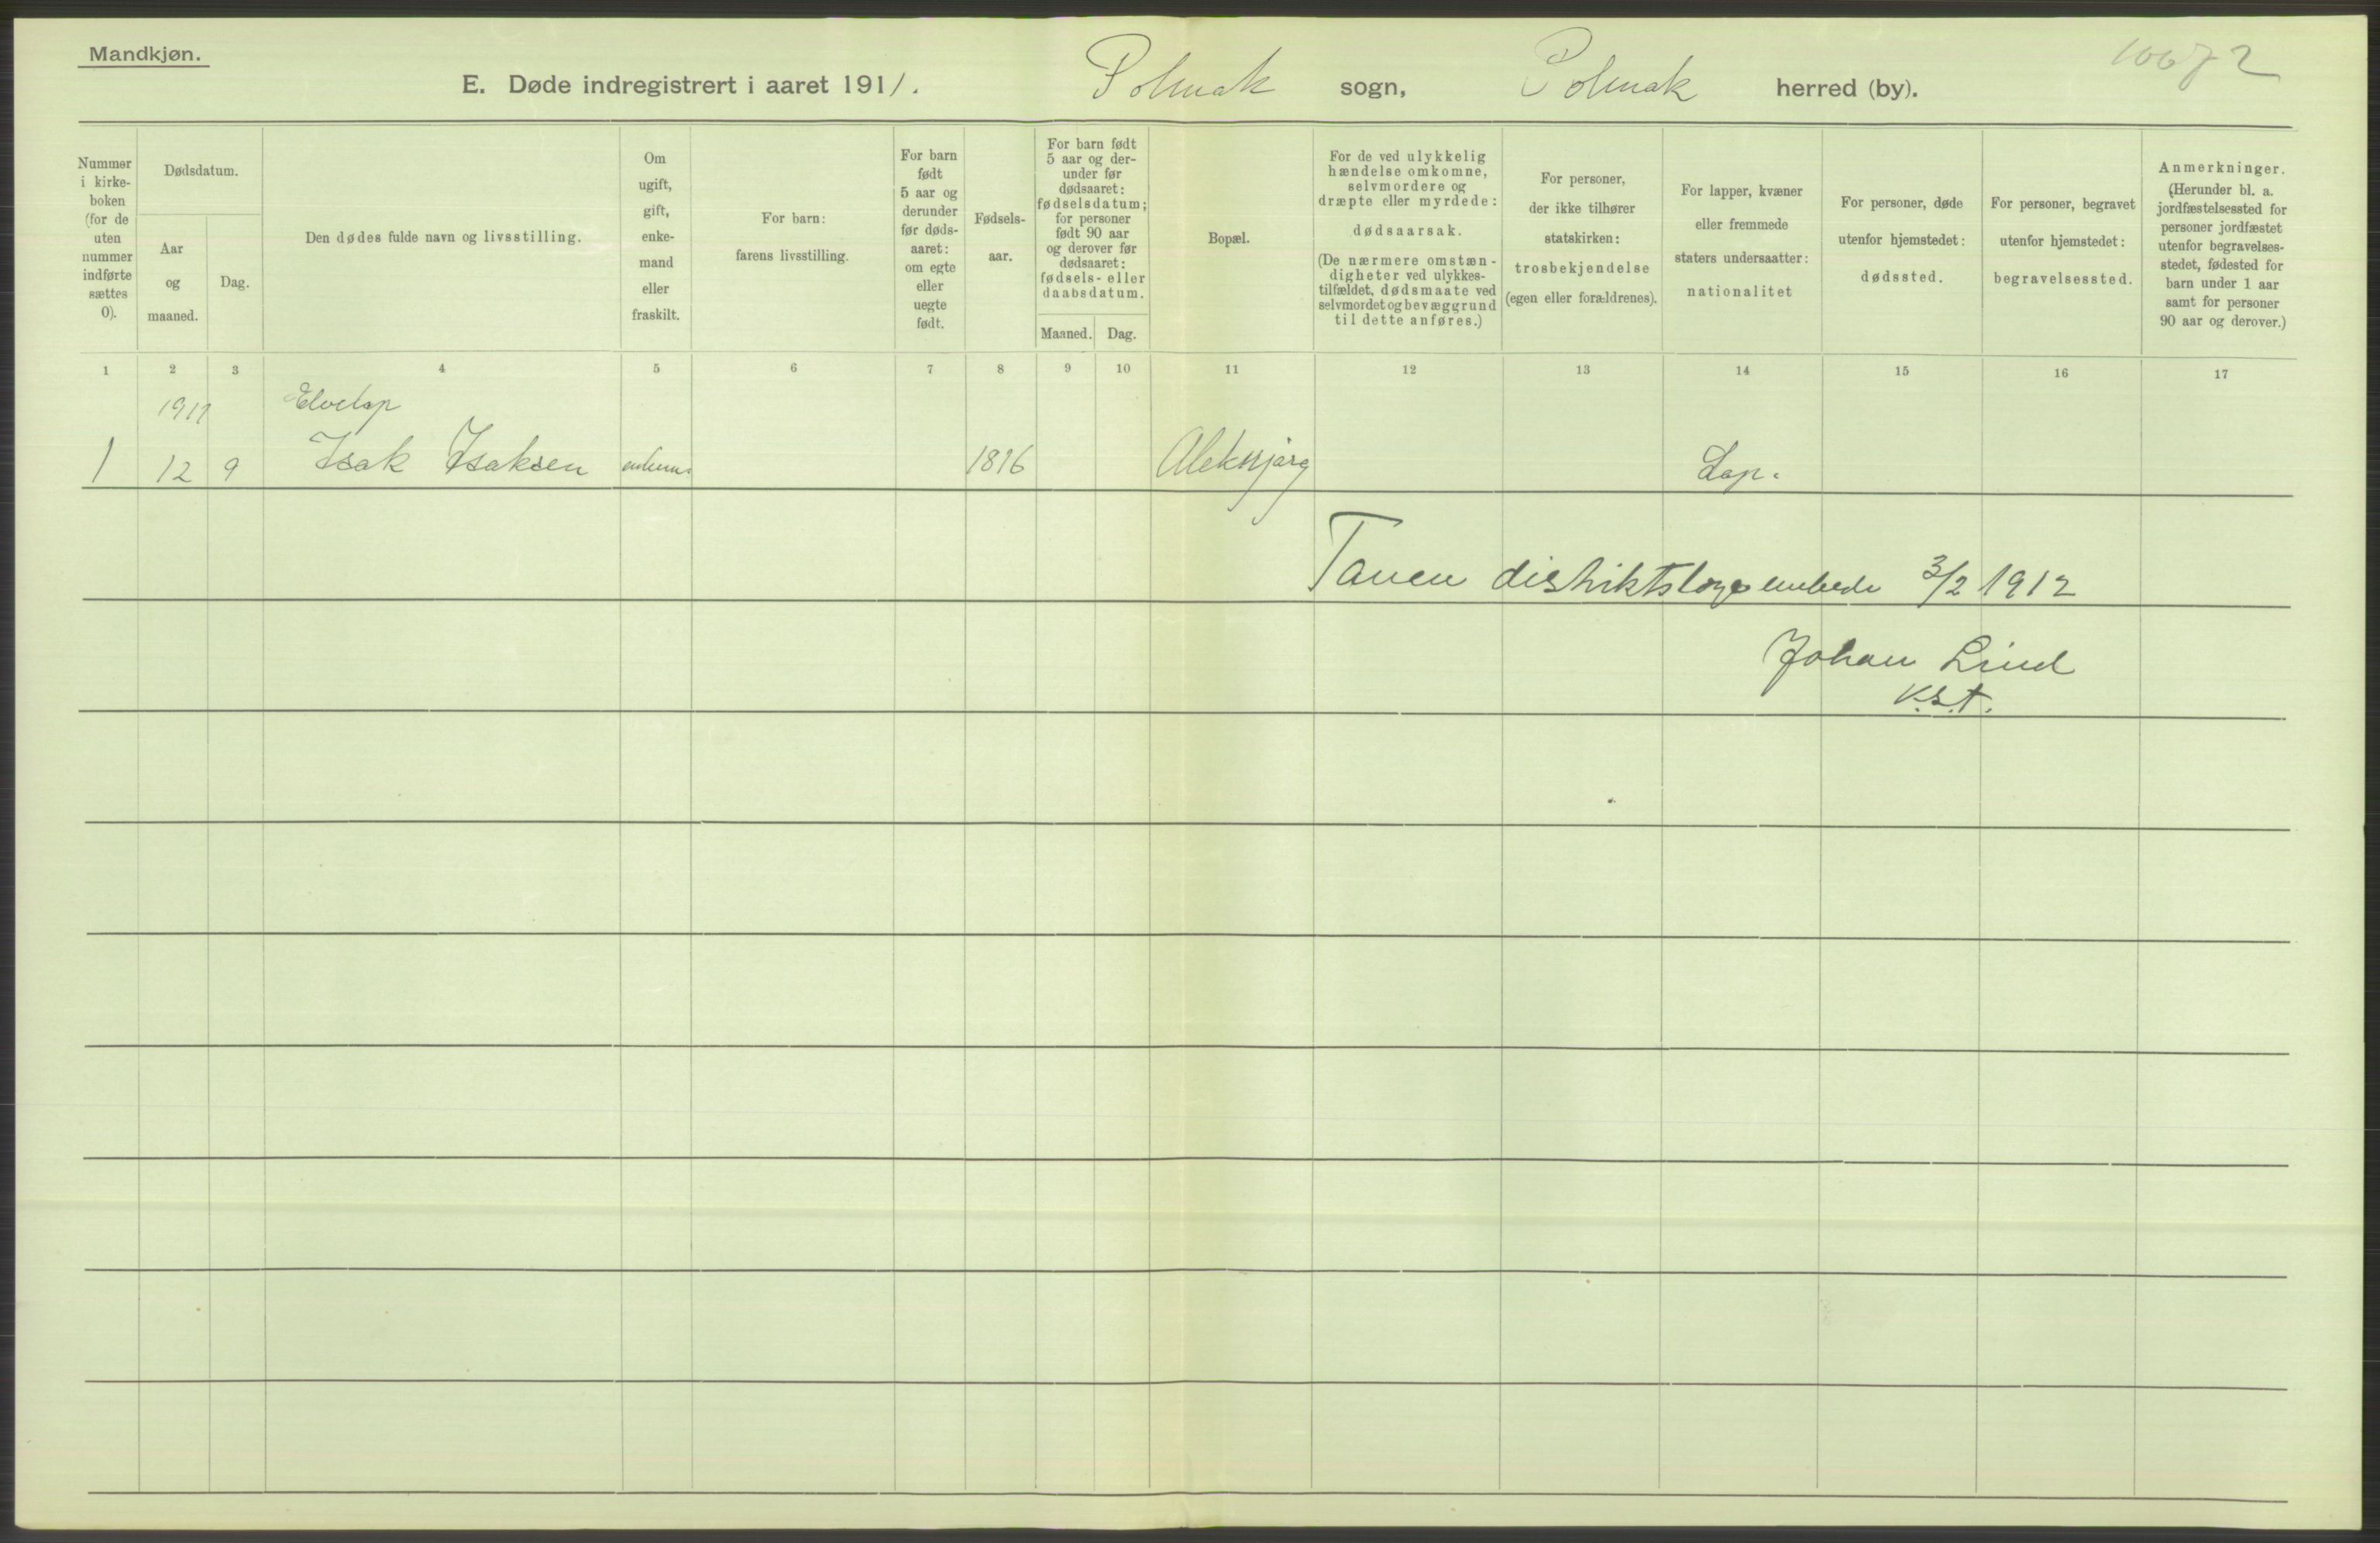 Mandkjøn.
10672
E. Døde indregistrert i aaret 1911. Polmak sogn, Polmak herred (by).
Nummer
i kirke-
boken
(for de
uten
nummer
indførte
sættes
0).
Dødsdatum.
Aar
og
maaned.
Dag.
Den dødes fulde navn og livsstilling.
Om
ugift,
gift,
enke-
mand
eller
fraskilt.
For barn:
farens livsstilling.
For barn
født
5 aar og
derunder
før døds-
aaret:
om egte
eller
uegte
født.
Fødsels-
aar.
For barn født
5 aar og der-
under før
dødsaaret:
fødselsdatum;
for personer
født 90 aar
og derover før
dødsaaret:
fødsels- eller
daabsdatum.
Maaned. Dag.
Bopæl.
For de ved ulykkelig
hændelse omkomne,
selvmordere og
dræpte eller myrdede:
dødsaarsak.
(De nærmere omstæn-
digheter ved ulykkes-
tilfældet, dødsmaate ved
selvmordet og bevæggrund
til dette anføres.)
For personer,
der ikke tilhører
statskirken:
trosbekjendelse
(egen eller forældrenes).
For lapper, kvæner
eller fremmede
staters undersaatter:
nationalitet
For personer, døde
utenfor hjemstedet:
dødssted.
For personer, begravet
utenfor hjemstedet:
begravelsessted.
Anmerkninger.
(Herunder bl. a.
jordfæstelsessted for
personer jordfæstet
utenfor begravelses-
stedet, fødested for
barn under 1 aar
samt for personer
90 aar og derover.)
1 2 3 4 5 6 7 8 9 10 11 12 13 14 15 16 17
1911 Elvelap
1 12 9 Isak Isaksen 1816 Lap.
Tanen 3/2 1912
Johan Lind
K.s.t.